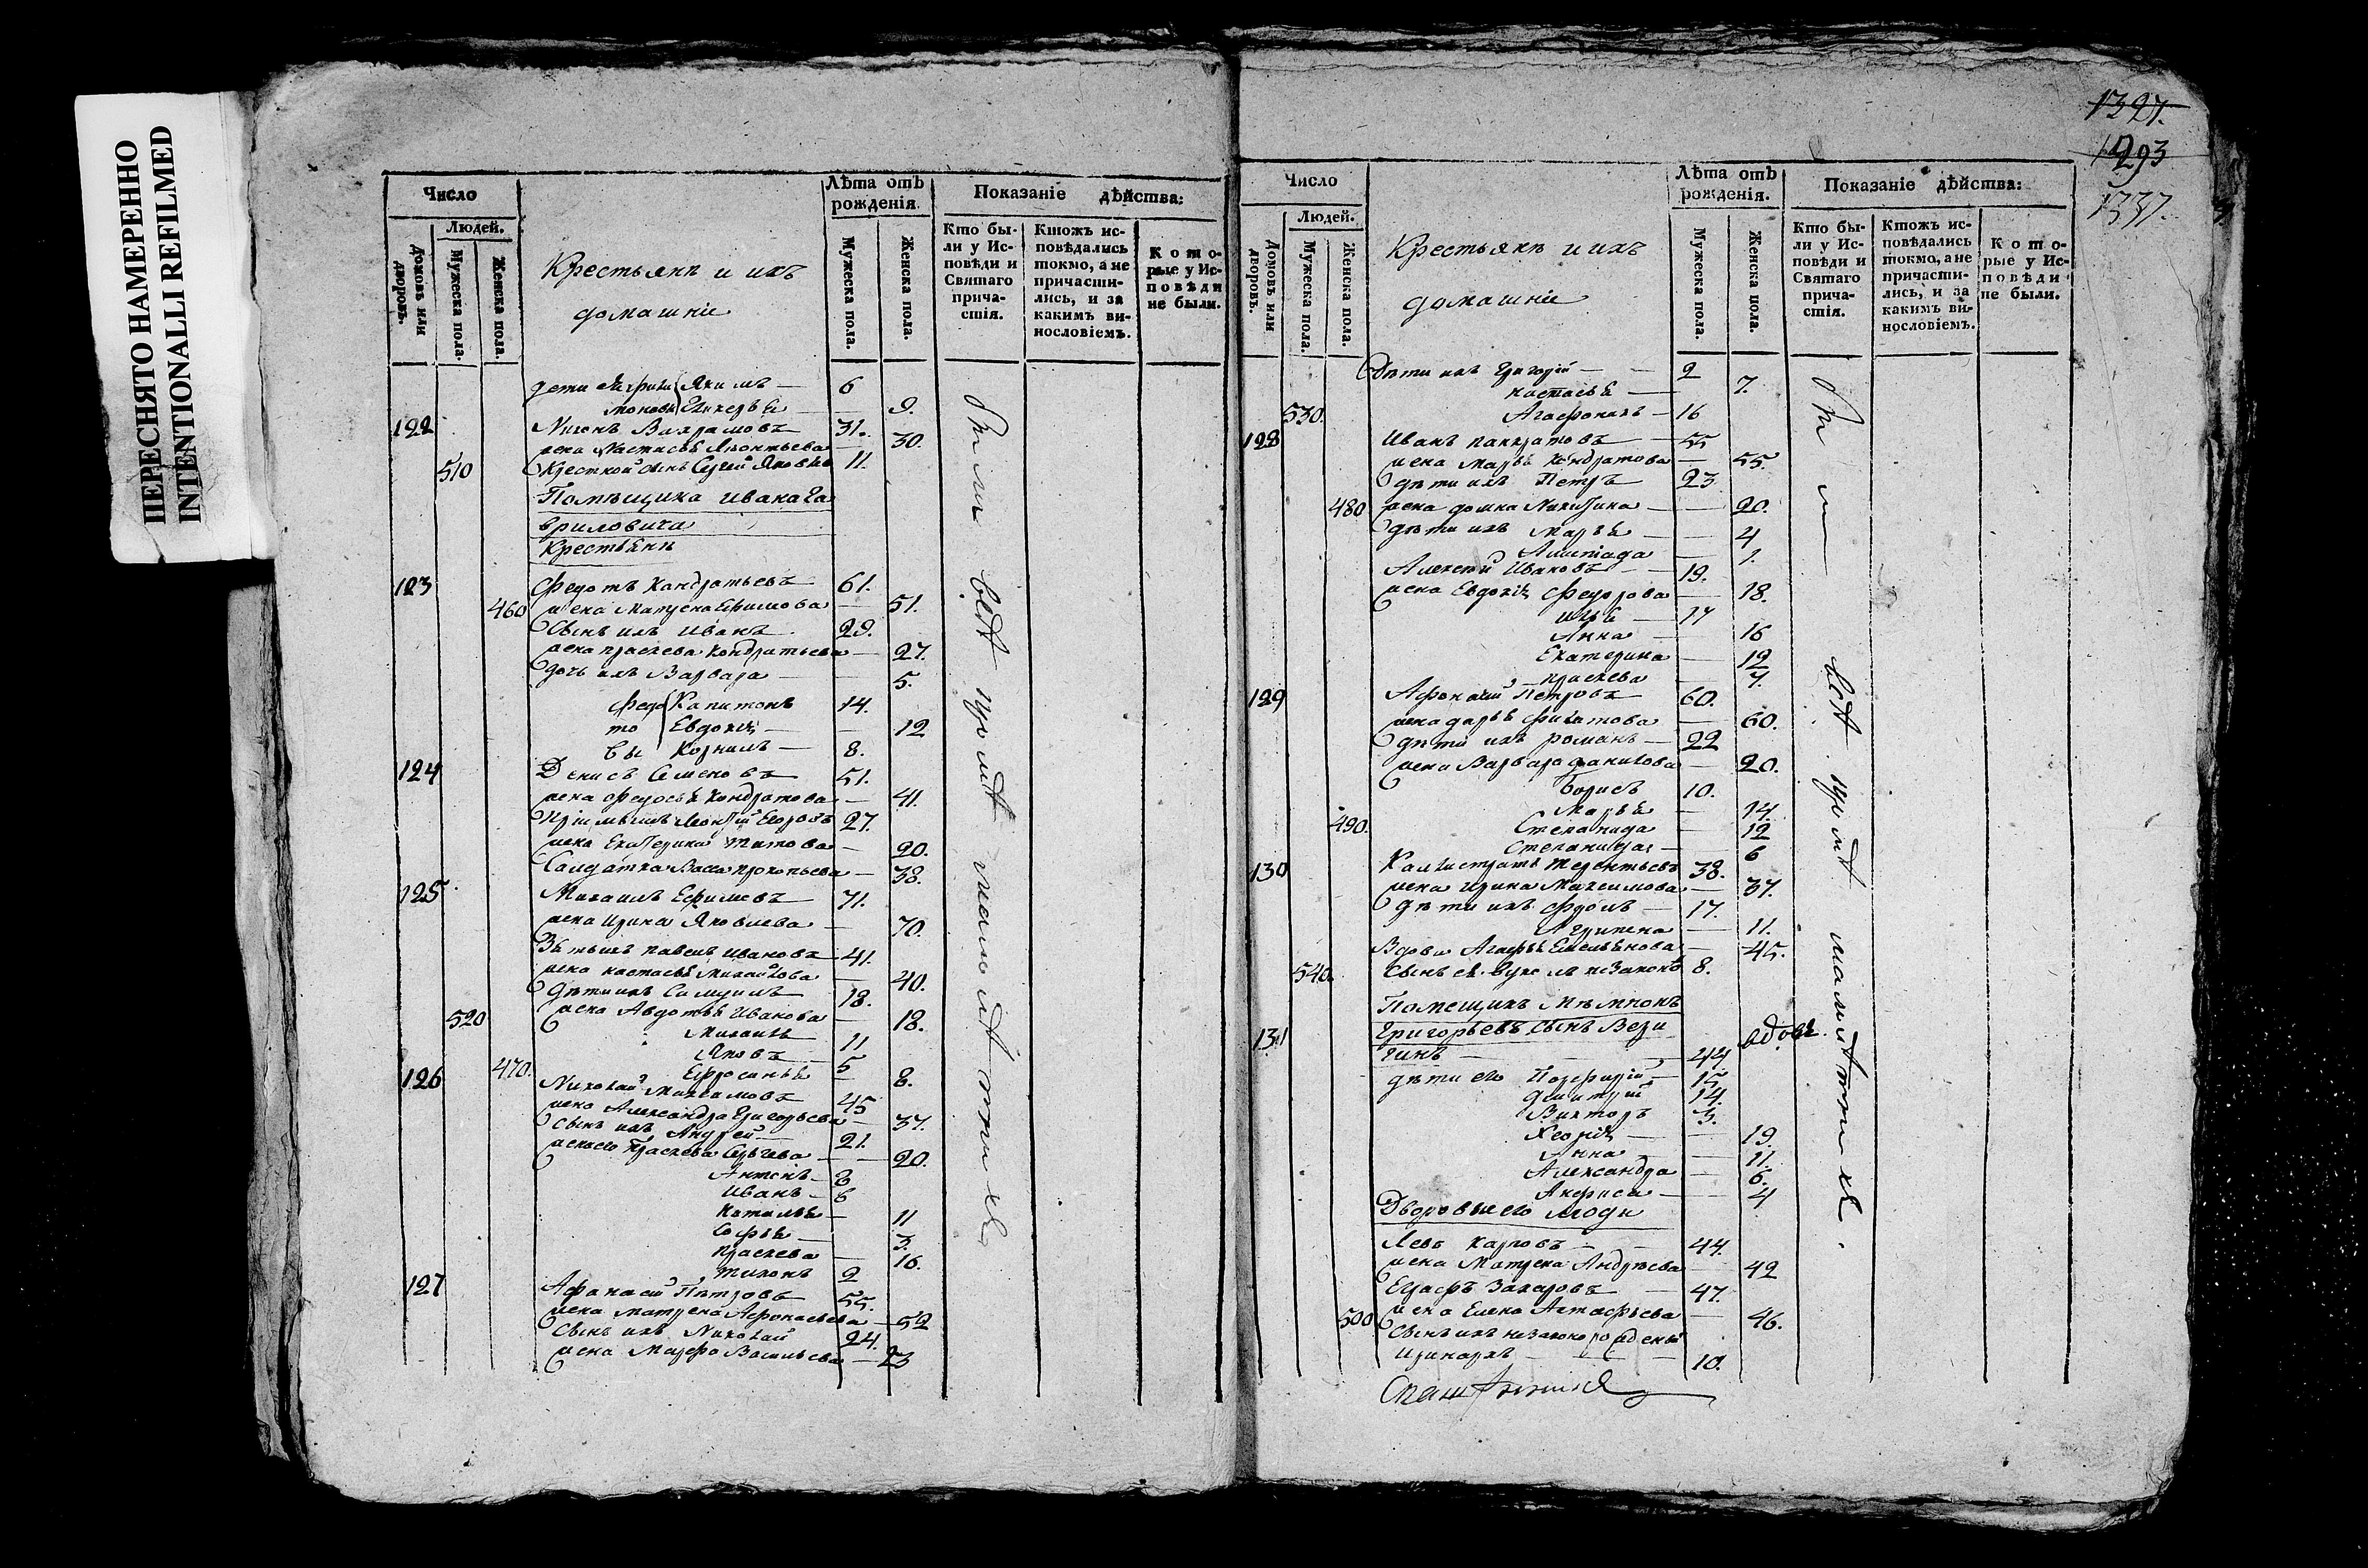 ПЕРЕСНЯТО НАМЕРЕННО
INTENTIONALLI REFILMED
Число
Людей.
Домовъ или дворовъ.
Мужеска пола.
Женска пола.
Крестьянѣ и ихъ
домашніе
Лѣта отъ рожденія.
Мужеска пола.
Женска пола.
Показаніе дѣйства:
Кто были у Исповѣди и Святаго причастія.
Ктожъ исповѣдались токмо, а не причастились, и за какимъ винословіемъ.
Которые у Исповѣди не были.
дети Якимъ — 6
Гликерья — 9.
122 Никонъ Варламовъ 31.
жена Настасья Леонтьева 30.
510 Крестной сынъ Сергей Яковлев 11.
Помѣщика Ивана Га
вриловича
Крестьяня
123 Федотъ Кандратьевъ 61.
460 жена Матрена Ефимова — 51.
Сынъ ихъ Иванъ 29.
жена праскева Кондратьева — 27.
дочь ихъ Варвара — 5.
Федо Капитонъ 14.
то Евдокія — 12
вы Корнилъ — 8.
124 Денисъ Семеновъ 51.
жена Федосья Кондратова — 41.
Пріимышъ Леонтий Егоровъ 27.
жена Екатерина Титова — 20.
Салдатка Васса прокопьева — 38.
125 Михаилъ Ефимовъ 71.
жена Ирина Яковлева — 70.
Зятьихъ павелъ Ивановъ 41.
жена настасья Михайлова — 40.
дѣтиихъ Самуилъ 18.
520 жена Авдотья Иванова — 18.
Михаилъ 11
Яковъ 5
470. Ефросинья — 8.
126 Николай Максимовъ 45
жена Александра Григорьева — 37.
сынъ ихъ Андрей 21.
женаего Праскева Сергеева — 20.
Антонъ — 8
Иванъ — 6
Наталья — 11
Софья — 3.
праскева — 16.
тихонъ 2
127 Афанасій Петровъ 55.
жена матрена Афонасьева — 52
сынъ ихъ Николай 24.
жена Марфа Васильева — 23
1327.
1293
1337.
Число
Людей.
Домовъ или дворовъ.
Мужеска пола.
Женска пола.
Крестьянѣ и ихъ
домашніе
Лѣта отъ рожденія.
Мужеска пола.
Женска пола.
Показаніе дѣйства:
Кто были у Исповѣди и Святаго причастія.
Ктожъ исповѣдались токмо, а не причастились, и за какимъ винословіемъ.
Которые у Исповѣди не были.
дѣти ихъ Григорій — 2
настасья 7.
530. Агафоникъ — 16
128 Иванъ панкратовъ — 55
жена марья Кондратова — 55.
дѣти ихъ Петръ 23
480 жена домна Никитина — 20.
дѣти ихъ марья — 4
Алимпіада — 1.
Алексѣй Ивановъ — 19.
жена Евдокія Федорова — 18.
Илья — 17
Анна — 16
Екатерина — 12
праскева — 7.
129 Афонасий Петровъ 60.
жена дарья Филатова — 60.
дѣти ихъ романъ — 22
жена Варвара данилова — 20.
Борисъ 10.
Марья — 14.
490. Степанида — 12
Степанида — 6
130 Калистратъ терентьевъ 38.
жена Ирина Максимова — 37.
дѣти ихъ Фролъ — 17.
Агрипена — 11.
Вдова Агафья Емельянова — 45.
540. 8.
Помещикъ
131 Григорьевъ сынъ Вези вдовъ.
гинъ — 44
дѣти его Порфирій — 15
дмитрій 14.
Викторъ 3.
19.
Анна — 11
Александра — 6.
Анфиса — 4
Дворовые его люди
Левъ Карповъ — 44.
жена Матрена Андрѣева — 42
Захаровъ — 47.
500 жена Елена Астафьева — 46.
сынъ ихъ незаконорожденый
Иринархъ — 10.